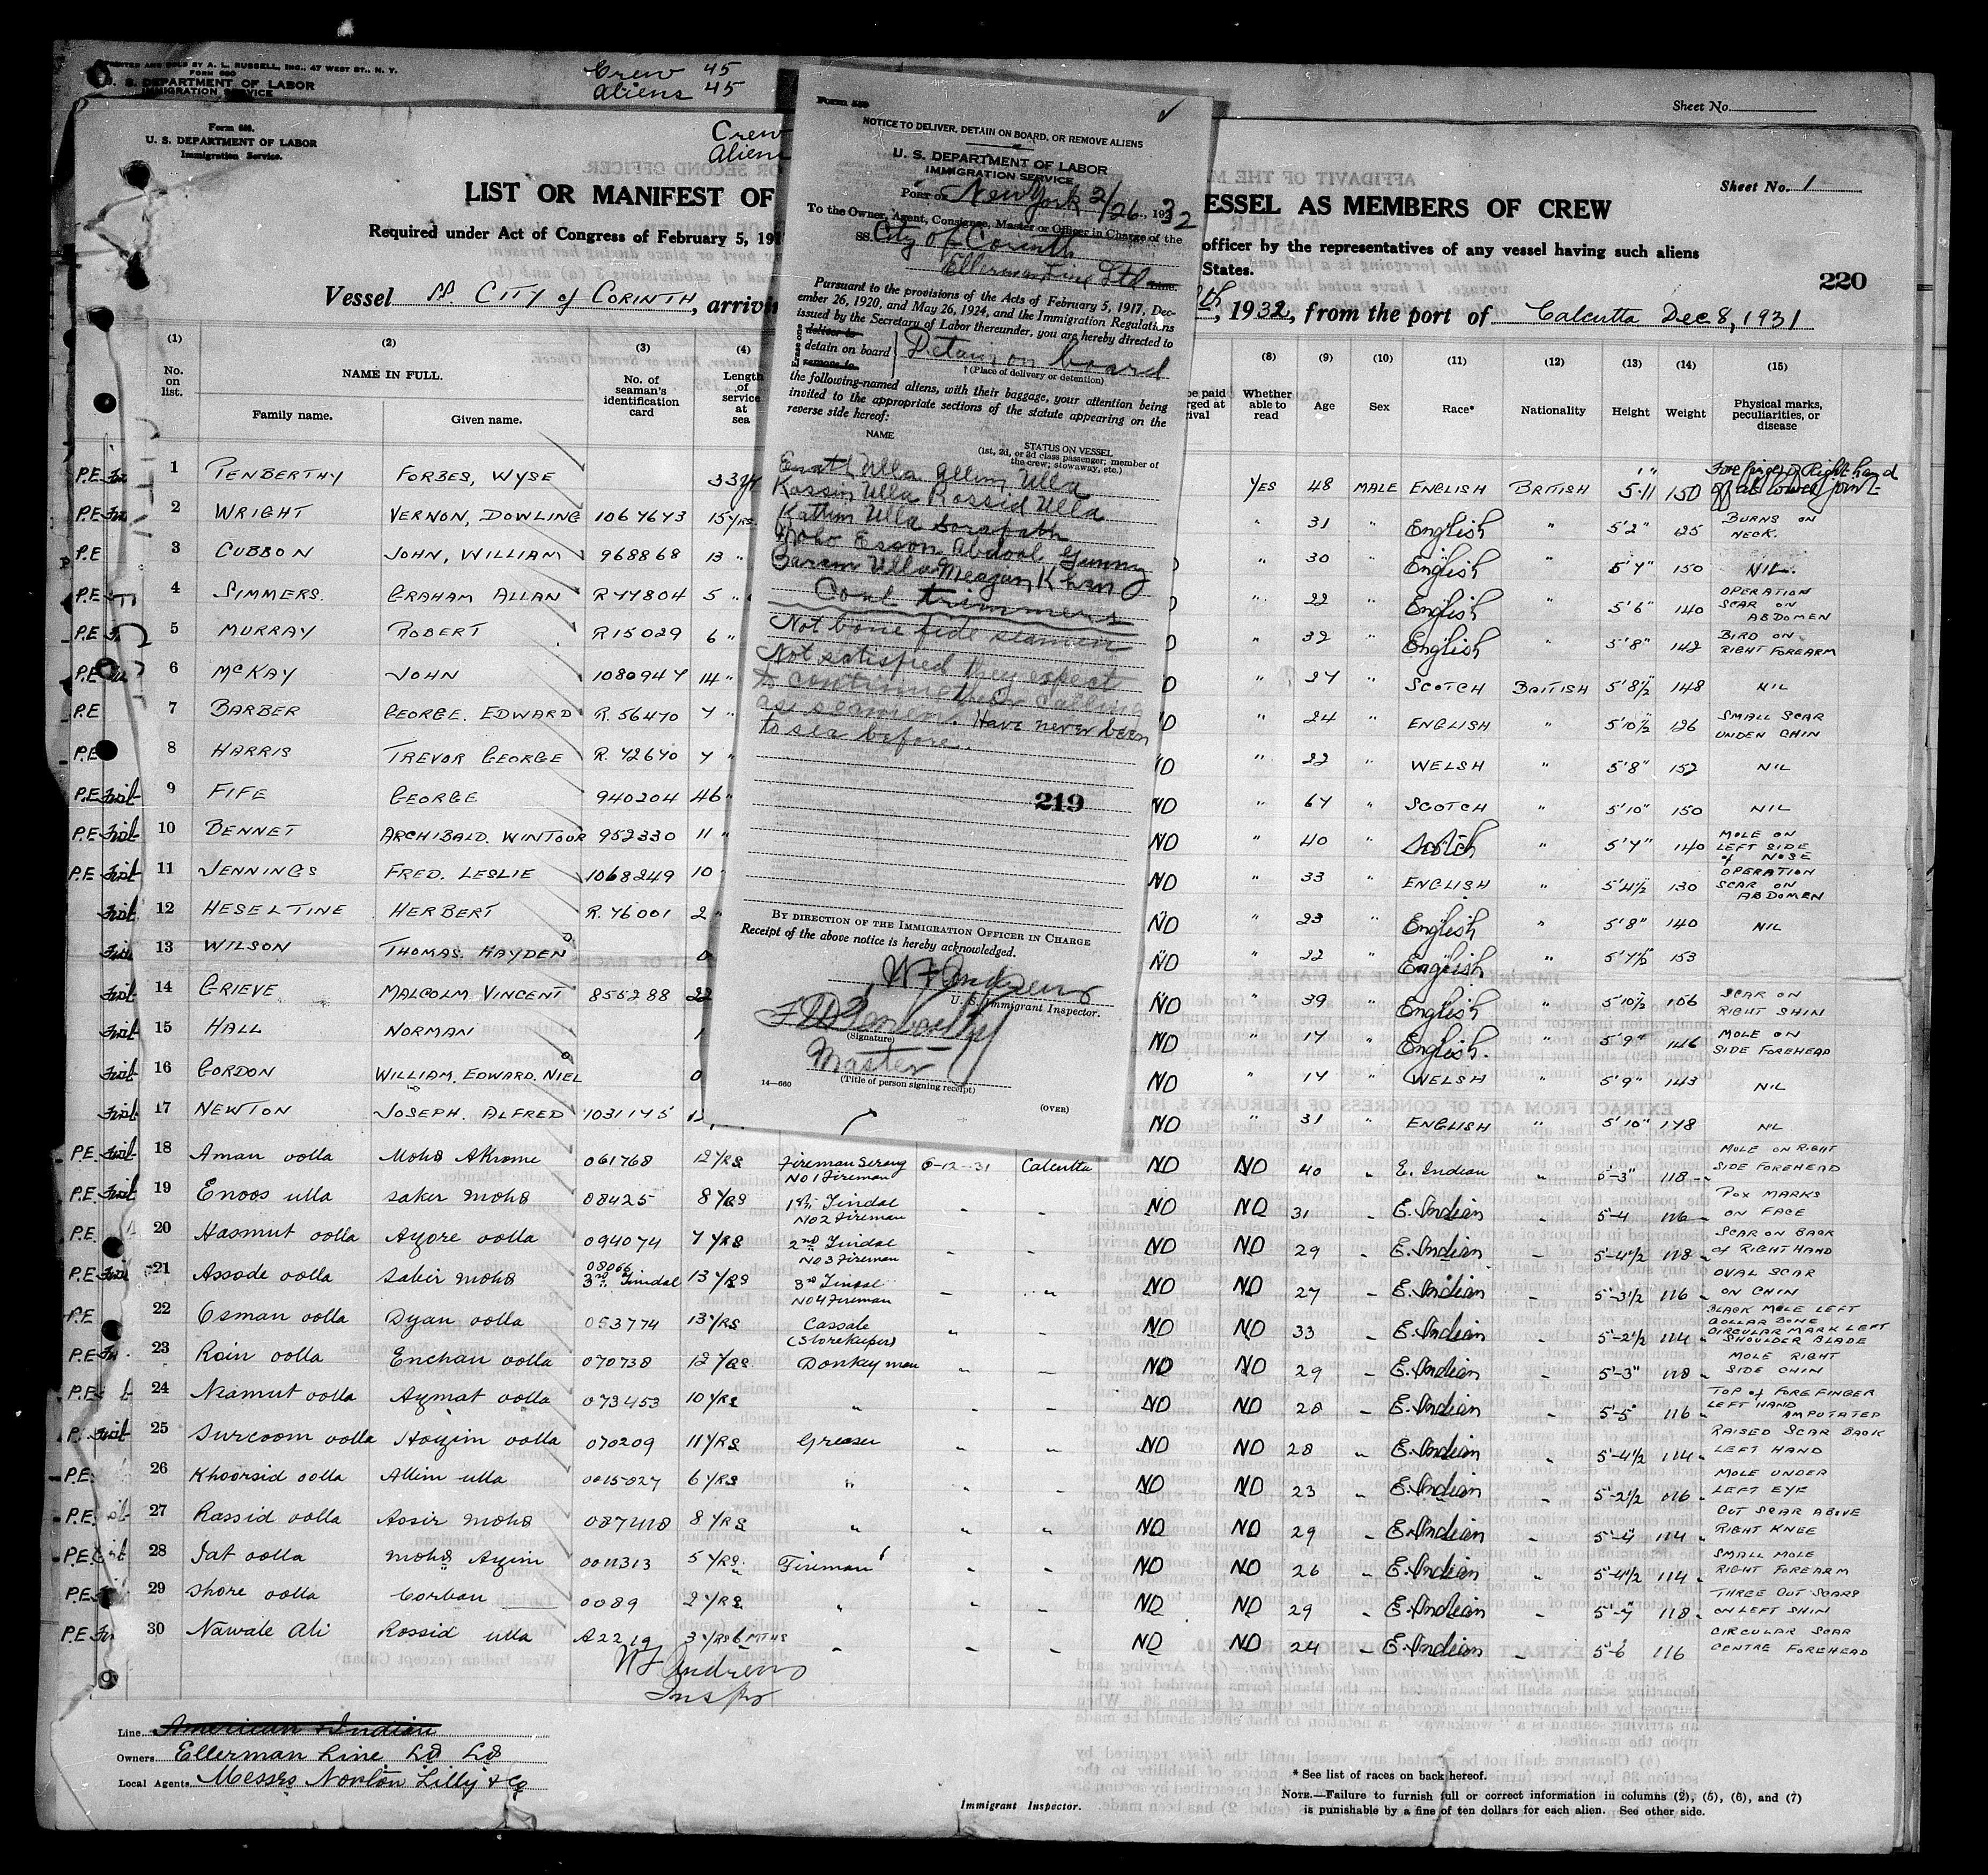 PRINTED AND SOLD BY A. L. RUSSELL, INC., 47 WEST ST., N. Y.
FORM 680
U. S. DEPARTMENT OF LABOR
IMMIGRATION SERVICE
Crew 45
Aliens 45
Sheet No.
Form 680.
U. S. DEPARTMENT OF LABOR
Immigration Service.
Crew
Aliens
Sheet No. 1
LIST OR MANIFEST OF
ESSEL AS MEMBERS OF CREW
Required under Act of Congress of February 5, 191
officer by the representatives of any vessel having such aliens
States.
220
Vessel SS. CITY of CORINTH, arrivin
th, 1932, from the port of Calcutta Dec 8, 1931
NOTICE TO DELIVER, DETAIN ON BOARD, OR REMOVE ALIENS
U. S. DEPARTMENT OF LABOR
IMMIGRATION SERVICE
PORT OF New York 2/26, 1932
To the Owner, Agent, Consignee, Master or Officer in Charge of the
SS. City of Corinth
Ellerman Line Ltd Line.
Pursuant to the provisions of the Acts of February 5, 1917, Dec-
ember 26, 1920, and May 26, 1924, and the Immigration Regulations
issued by the Secretary of Labor thereunder, you are hereby directed to
Erase one
deliver to
detain on board
remove to
Detain on board
† (Place of delivery or detention)
the following-named aliens, with their baggage, your attention being
invited to the appropriate sections of the statute appearing on the
reverse side hereof:
NAME
STATUS ON VESSEL
(1st, 2d, or 3d class passenger; member of
the crew; stowaway, etc.)
Ulla Allim Ulla
Kassim Ulla Rossid Ulla
Kattim Ulla Sorafath
Moho Esoon Abdool Gunny
Baram Ulla Meazan Khan
Coal trimmers
Not bone fide seamen
Not satisfied they expect
to continue their calling
as seamen. Have never been
to sea before.
219
BY DIRECTION OF THE IMMIGRATION OFFICER IN CHARGE
Receipt of the above notice is hereby acknowledged.
W F Andrews
U. S. Immigrant Inspector.
F W Penberthy
(Signature)
Master
(Title of person signing receipt)
14—660
(OVER)
(1) (2) (3) (4) (8) (9) (10) (11) (12) (13) (14) (15)
No. on list.
NAME IN FULL.
Family name. Given name.
No. of seaman's identification card
Length of service at sea
Whether able to read
Age Sex Race* Nationality Height Weight
Physical marks, peculiarities, or disease
P.E 1 PENBERTHY FORBES, WYSE 33 yr YES 48 MALE ENGLISH BRITISH 5.11 150 Fore finger of Right hand off at lower joint
P.E 2 WRIGHT VERNON, DOWLING 1067673 15 YRS. " 31 " English " 5'2" 125 BURNS ON NECK.
P.E 3 CUBBON JOHN, WILLIAM 968868 13 " " 30 " English " 5'7" 150 NIL.
P.E 4 SIMMERS. GRAHAM ALLAN R77804 5 " " 22 " English " 5'6" 140 OPERATION SCAR ON ABDOMEN
P.E 5 MURRAY ROBERT R15029 6 " " 32 " English " 5'8" 142 BIRD ON RIGHT FOREARM
P.E 6 McKAY JOHN 1080947 14 " " 27 " SCOTCH BRITISH 5'8½" 148 NIL
P.E 7 BARBER GEORGE. EDWARD R. 56470 7 " " 24 " ENGLISH " 5'10½ 126 SMALL SCAR UNDEN CHIN
P.E 8 HARRIS TREVOR GEORGE R. 72670 7 " " 22 " WELSH " 5'8" 152 NIL
P.E First 9 FIFE GEORGE 940204 46 " NO " 64 " SCOTCH " 5'10" 150 NIL
P.E First 10 BENNET ARCHIBALD. WINTOUR 952330 11 " NO " 40 " Scotch " 5'7" 140 MOLE ON LEFT SIDE of NOSE
P.E First 11 JENNINGS FRED. LESLIE 1068249 10 NO " 33 " ENGLISH " 5'4½ 130 OPERATION SCAR ON ABDOMEN
First 12 HESELTINE HERBERT R. 76001 2 " NO " 23 " English " 5'8" 140 NIL
First 13 WILSON THOMAS. HAYDEN 0 NO " 22 " English " 5'7½ 153
First 14 GRIEVE MALCOLM VINCENT 855288 22 NO " 39 " English " 5'10½ 156 SCAR ON RIGHT SHIN
First 15 HALL NORMAN 1 NO " 17 " English. " 5'9" 146 MOLE ON SIDE FOREHEAD
First 16 GORDON WILLIAM. EDWARD. NIEL 0 NO " 17 " WELSH " 5'9" 143 NIL
First 17 NEWTON JOSEPH. ALFRED 1031175 NO " 31 " ENGLISH " 5'10" 178 NIL
P.E. First 18 Aman oolla Mohd Akrome 061768 12 YRS Fireman Serang No 1 Fireman 6-12-31 Calcutta NO NO 40 " E. Indian 5-3" 118 MOLE ON RIGHT SIDE FOREHEAD
P.E. First 19 Enoos ulla saker mohd 08425 8 YRS 1st Tindal No 2 Fireman NO NO 31 " E. Indian 5-4 116 POX MARKS ON FACE
P.E. 20 Hasmut oolla Ayore oolla 094074 7 YRS 2nd Tindal No 3 Fireman NO NO 29 E. Indian 5'-4½ 118 SCAR ON BACK of RIGHT HAND
P.E 21 Assode oolla Saber mohd 08066 3rd Tindal 13 YRS 3rd Tindal No 4 Fireman NO NO 27 E. Indian 5'-3½ 116 OVAL SCAR ON CHIN
P.E 22 Osman oolla Dyan oolla 053774 13 YRS Cassab (Storekeeper) NO NO 33 E. Indian 5'-2½ 114 BLACK MOLE LEFT COLLAR BONE CIRCULAR MARK LEFT SHOULDER BLADE
P.E 23 Roin oolla Enchan oolla 070738 12 YRS Donkeyman NO NO 29 E. Indian 5'-3" 118 MOLE RIGHT SIDE CHIN
P.E 24 Neamut oolla Aymat oolla 073453 10 YRS " NO NO 28 E. Indian 5'-5" 116 TOP of FOREFINGER LEFT HAND AMPUTATED
25 Surcoom oolla Hazim oolla 070209 11 YRS Greaser NO NO 28 E. Indian 5'-4½ 114 RAISED SCAR BACK LEFT HAND
P.E. 26 Khoorsid oolla Allim ulla 0015027 6 YRS " NO NO 23 E. Indian 5'-2½ 116 MOLE UNDER LEFT EYE
P.E. 27 Rassid oolla Assir mohd 8 YRS " NO NO 29 E. Indian 5'-4" 114 CUT SCAR ABOVE RIGHT KNEE
P.E. 28 Jat oolla mohd Azim 0011313 5 YRS Fireman NO NO 26 E. Indian 5'-4½ 114 SMALL MOLE RIGHT FOREARM
P.E. 29 Shore oolla Corban 0089 2 YRS " NO NO 29 E. Indian 5'-7" 118 THREE CUT SCARS ON LEFT SHIN
P.E 30 Nawab Ali Rossid ulla A2219 3 YRS 6 MTHS " NO NO 24 E. Indian 5-6 116 CIRCULAR SCAR CENTRE FOREHEAD
W F Andrews
Inspr
Line American & Indian
Owners Ellerman Line Ld Ld
Local Agents Messrs Norton Lilly & Co
Immigrant Inspector.
* See list of races on back hereof.
NOTE.—Failure to furnish full or correct information in columns (2), (5), (6), and (7)
is punishable by a fine of ten dollars for each alien. See other side.